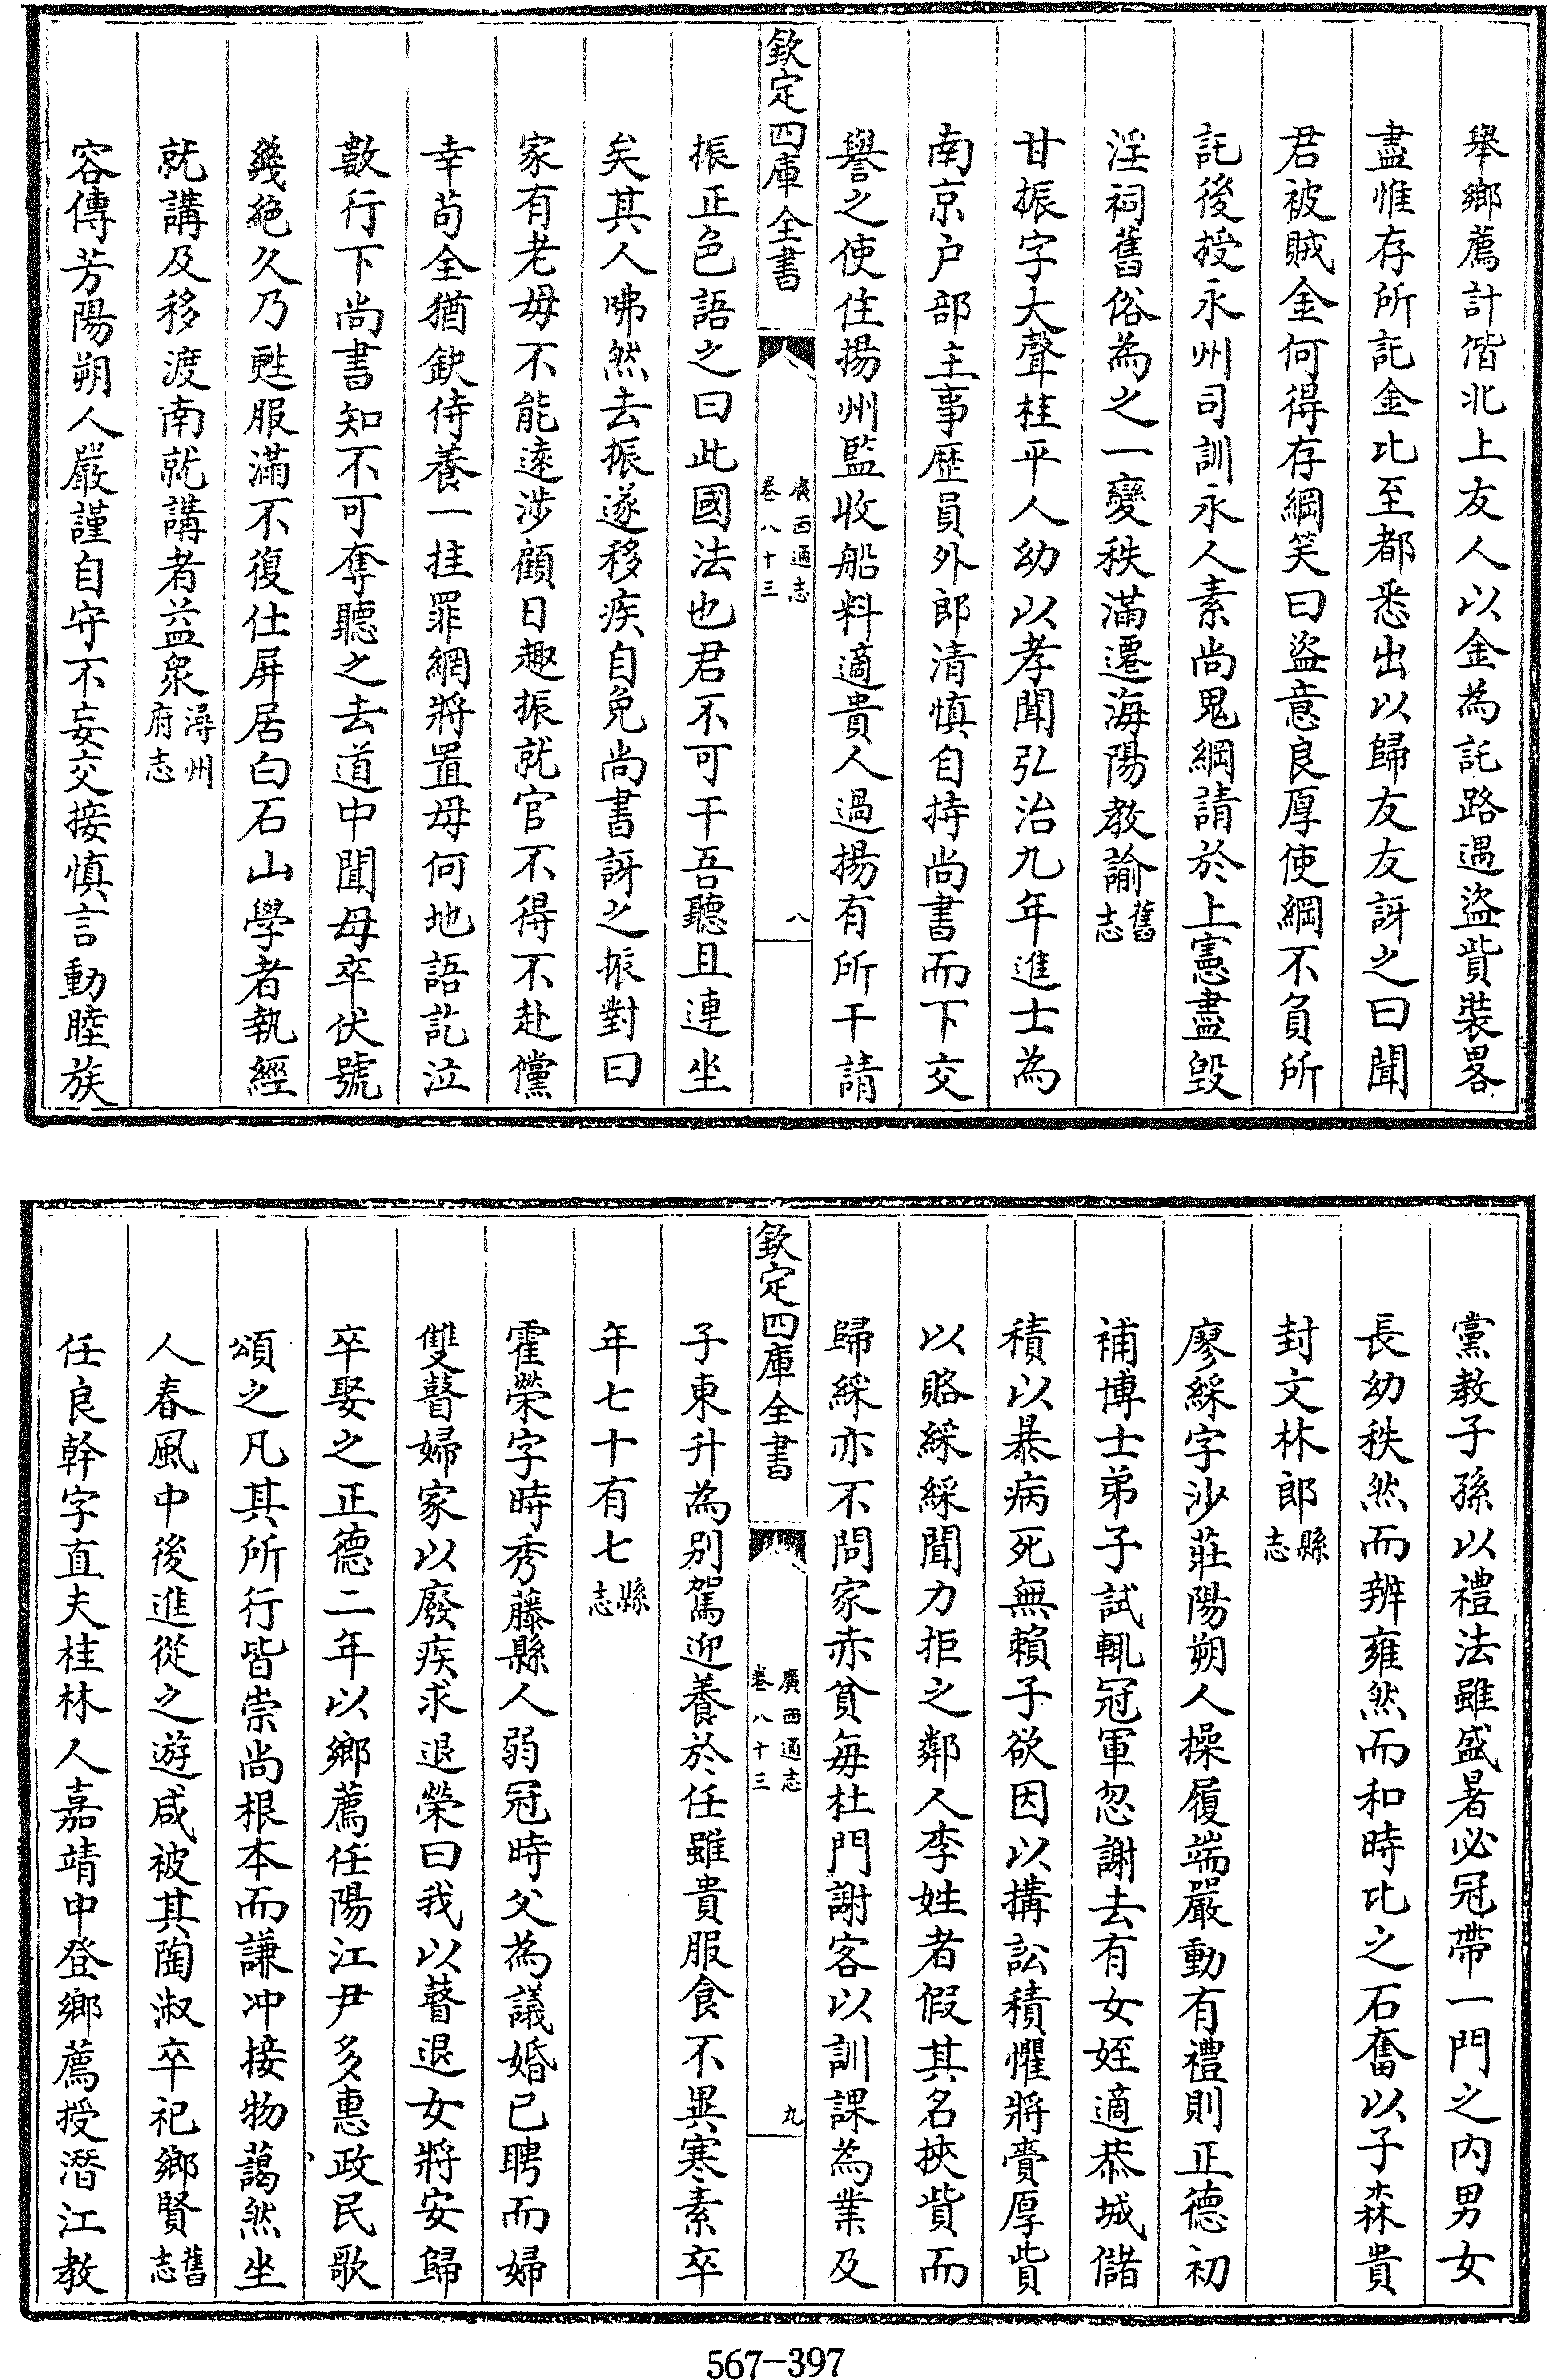 舉鄉薦計偕北上友人以金為託路遇盜貲裝畧
盡惟存所託金比至都悉出以歸友友訝之曰聞
君被賊金何得存綱笑曰盜意良厚使綱不負所
託後授永州司訓永人素尚鬼綱請於上憲盡毀
淫祠舊俗為之一變秩滿遷海陽教諭舊志
甘振字大聲桂平人幼以孝聞弘治九年進士為
南京户部主事歴員外郎清慎自持尚書而下交
譽之使住揚州監收船料適貴人過揚有所干請
欽定四庫全書 廣西通志卷八十三 八
振正色語之曰此國法也君不可干吾聽且連坐
矣其人咈然去振遂移疾自免尚書訝之振對曰
家有老毋不能逺涉顧日趣振就官不得不赴儻
幸苟全猶缺侍養一挂罪網將置母何地語訖泣
數行下尚書知不可奪聽之去道中聞母卒伏號
幾絶久乃甦服滿不復仕屏居白石山學者執經
就講及移渡南就講者益衆潯州府志
容傳芳陽朔人嚴謹自守不妄交接慎言動睦族
黨教子孫以禮法雖盛暑必冠帶一門之内男女
長幼秩然而辨雍然而和時比之石奮以子森貴
封文林郎縣志
廖綵字沙莊陽朔人操履端嚴動有禮則正德初
補博士弟子試輒冠軍忽謝去有女姪適恭城儲
積以暴病死無賴子欲因以搆訟積懼將賷厚貲
以賂綵綵聞力拒之鄰人李姓者假其名挾貲而
歸綵亦不問家赤貧每杜門謝客以訓課為業及
欽定四庫全書 廣西通志卷八十三 九
子東升為别駕迎養於任雖貴服食不異寒素卒
年七十有七縣志
霍榮字時秀藤縣人弱冠時父為議婚已聘而婦
雙瞽婦家以廢疾求退榮曰我以瞽退女將安歸
卒娶之正德二年以鄉薦任陽江尹多惠政民歌
頌之凡其所行皆崇尚根本而謙冲接物藹然坐
人春風中後進從之遊咸被其陶淑卒祀鄉賢舊志
任良幹字直夫桂林人嘉靖中登鄉薦授潛江教
567-397